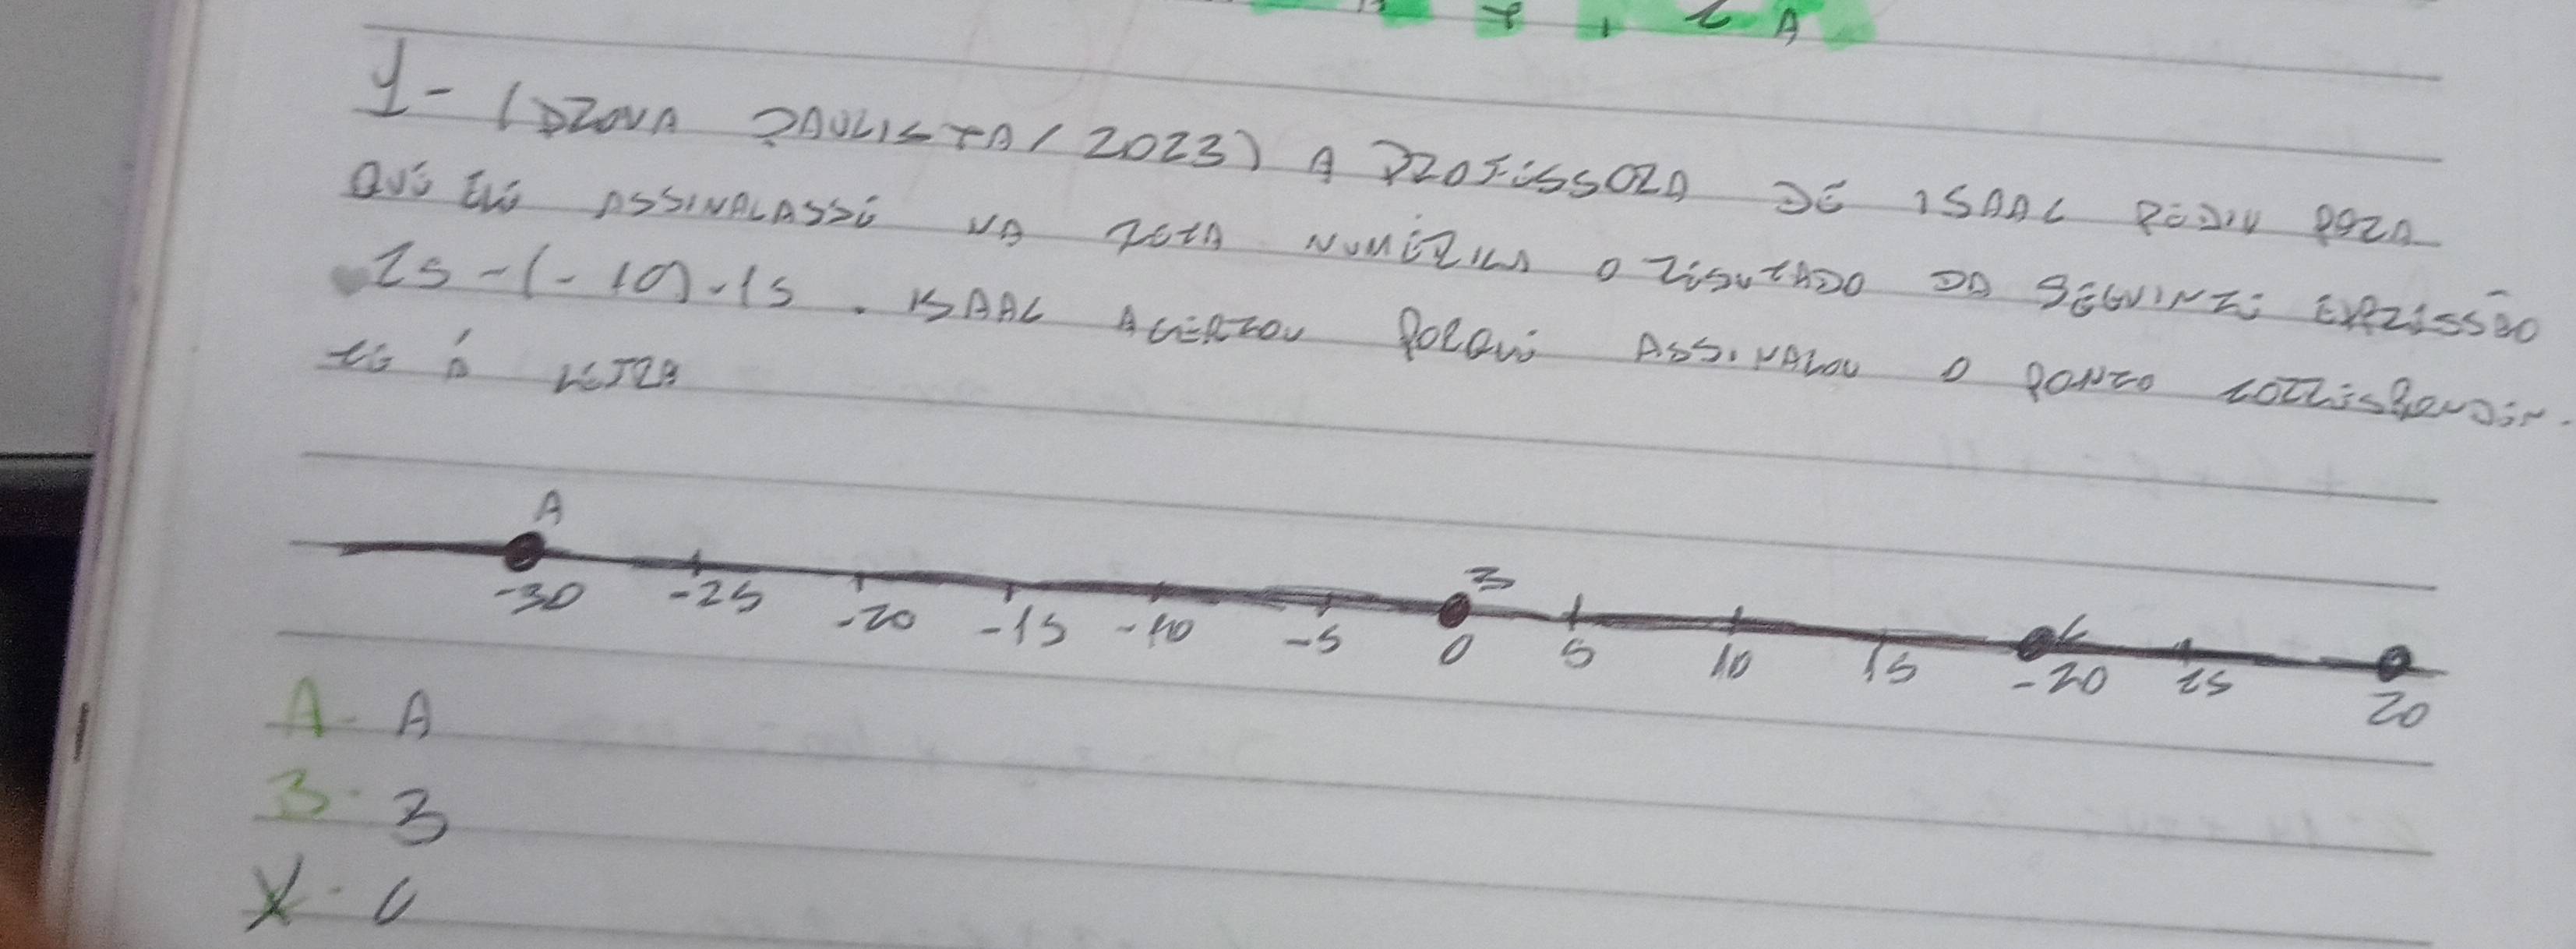 A
1- (PROVA PAULISTA/2023) A PROFESSORA DE ISAAC PEDIU PARA
QUE ELE ASSINALASSE NA RETA NUMÉRICA O RESUTADO DA SEGUINTE EXPRESSÃO
25-(-10)-15. ISAAC ACERTOU PORQUE ASSINALOU O PONTO CORRESPONDEN-
TE Á LETRA
A B C
-30 -25 -20 -15 -10 -5 0 5 10 15 -20 25 20
A- A
B- B
X- C